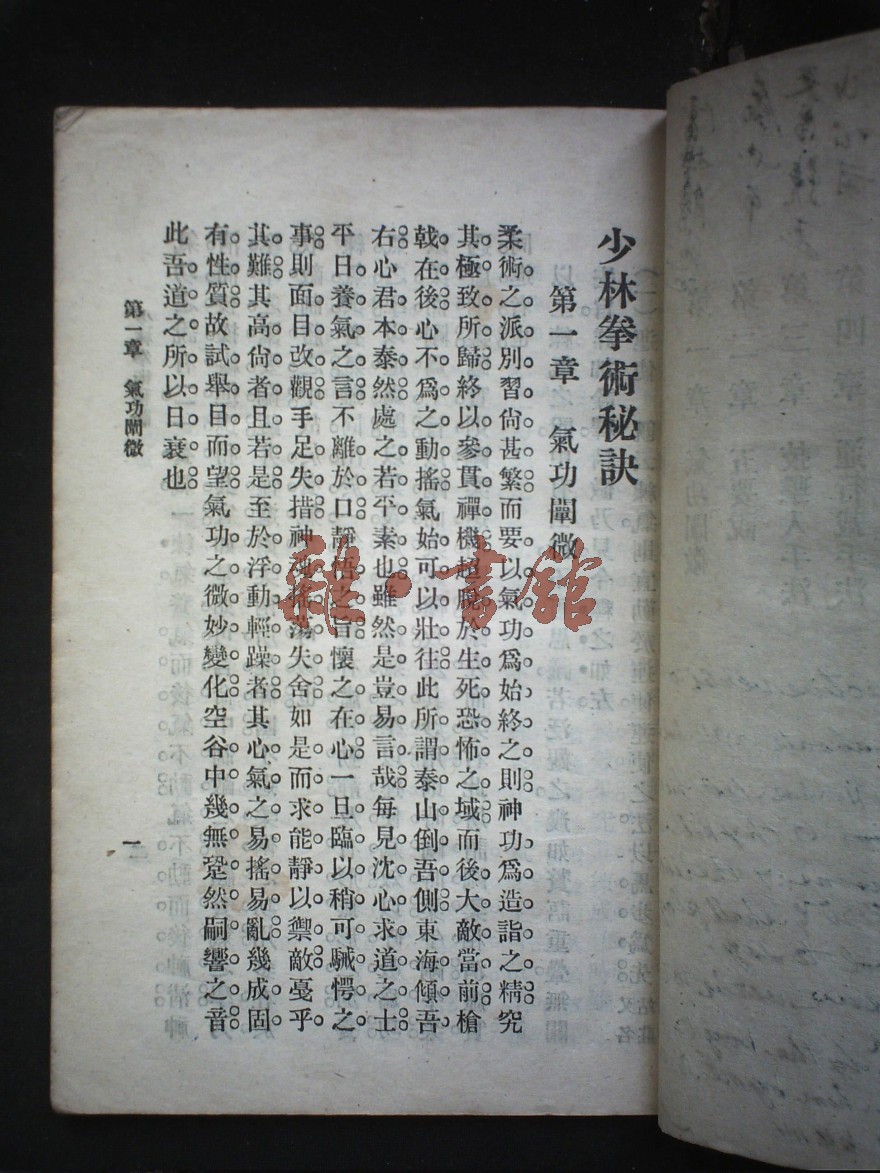 少林拳術秘訣
第一章 氣功闡微
柔術之派別習尙甚繁而要以氣功爲始終之則神功爲造詣之精究
其極致所歸終以參貫禪機超脫於生死恐怖之域而後大敵當前槍
戟在後心不爲之動搖氣始可以壯往此所謂泰山倒吾側東海傾吾
右心君本泰然處之若平素也雖然是豈易言哉每見沈心求道之士
平日養氣之言不離於口靜悟之旨懷之在心一旦臨以稍可駴愕之
事則面目改觀手足失措神魂搖蕩失舍如是而求能靜以禦敵戞乎
其難其高尙者且若是至於浮動輕躁者其心氣之易搖易亂幾成固
有性質故試舉目而望氣功之微妙變化空谷中幾無跫然嗣響之音
此吾道之所以日衰也
第一章 氣功闡微
一
雜·書館